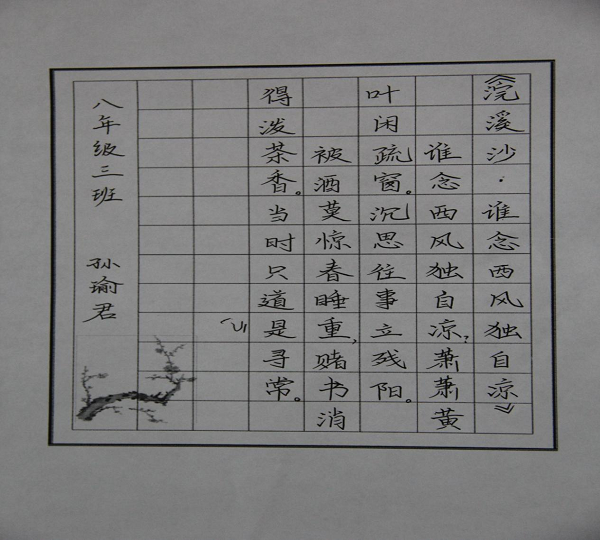 《浣溪沙·谁念西风独自凉》
谁念西风独自凉,萧萧黄
叶闲疏窗。沉思往事立残阳。
被酒莫惊春睡重,赌书消
得泼茶香。当时只道是寻常。
八年级三班 孙瑜君